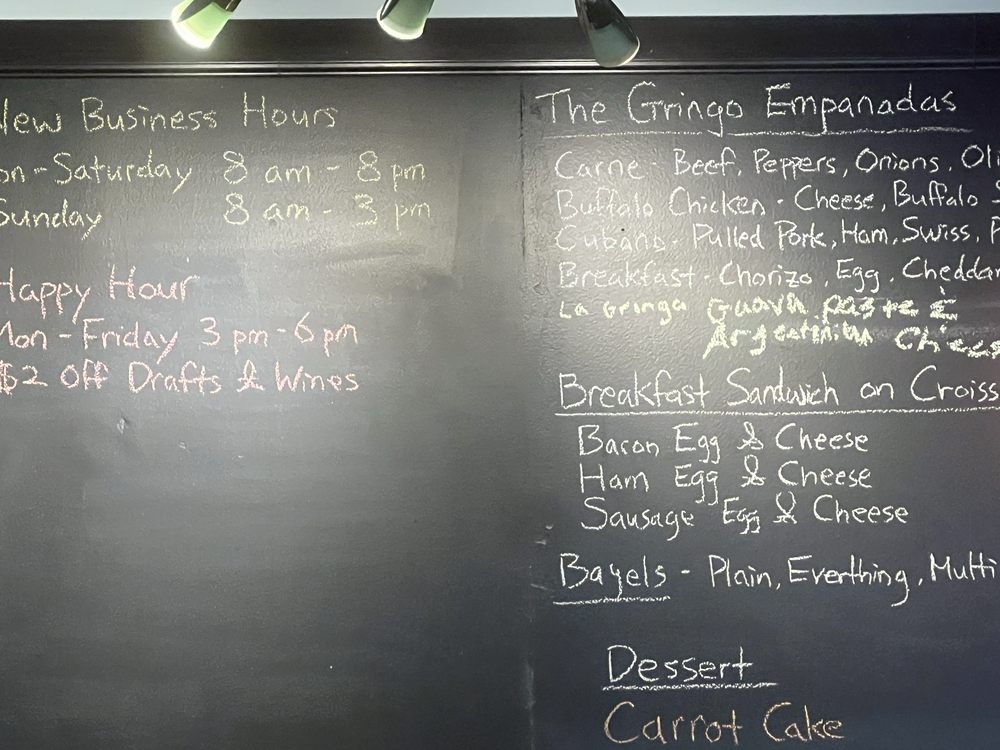 New Business Hours
on-Saturday 8 am - 8 pm
Sunday 8 am - 3 pm
Happy Hour
Mon-Friday 3 pm-6 pm
$2 Off Drafts & Wines
The Gringo Empanadas
Carne - Beef, Peppers, Onions, Oli
Buffalo Chicken - Cheese, Buffalo
Cubano - Pulled Pork, Ham, Swiss, P
Breakfast - Chorizo, Egg, Cheddar
La Gringa Guava paste &
Argentinian Chees
Breakfast Sandwich on Croiss
Bacon Egg & Cheese
Ham Egg & Cheese
Sausage Egg & Cheese
Bagels - Plain, Everthing, Multi
Dessert
Carrot Cake